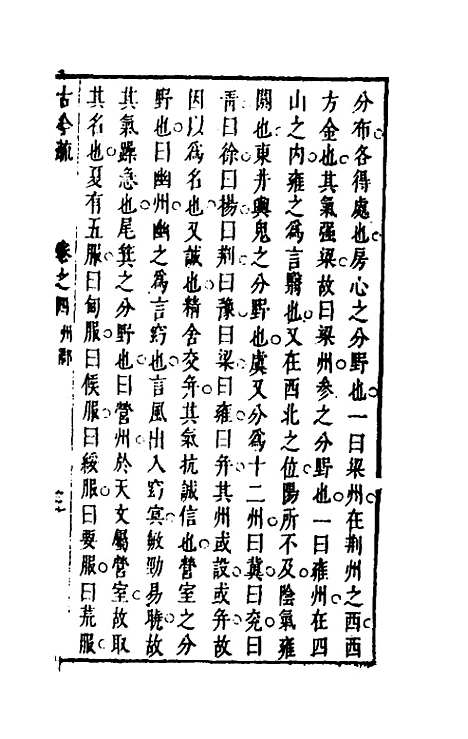 分布各得處也房心之分野也一曰梁州在荆州之西西
方金也其氣强梁故曰梁州參之分野也一曰雍州在四
山之内雍之爲言翳也又在西北之位陽所不及陰氣雍
閼也東井輿鬼之分野也虞又分爲十二州曰冀曰兖曰
青曰徐曰揚曰荆曰豫曰梁曰雍曰并其州或設或并故
因以爲名也又誠也精舍交并其氣抗誠信也營室之分
野也曰幽州幽之爲言窈也言風出入窈㝠敏勁易曉故
其氣躁急也尾箕之分野也曰營州於天文屬營室故取
其名也夏有五服曰甸服曰侯服曰綏服曰要服曰荒服
古今疏 卷之四 州郡